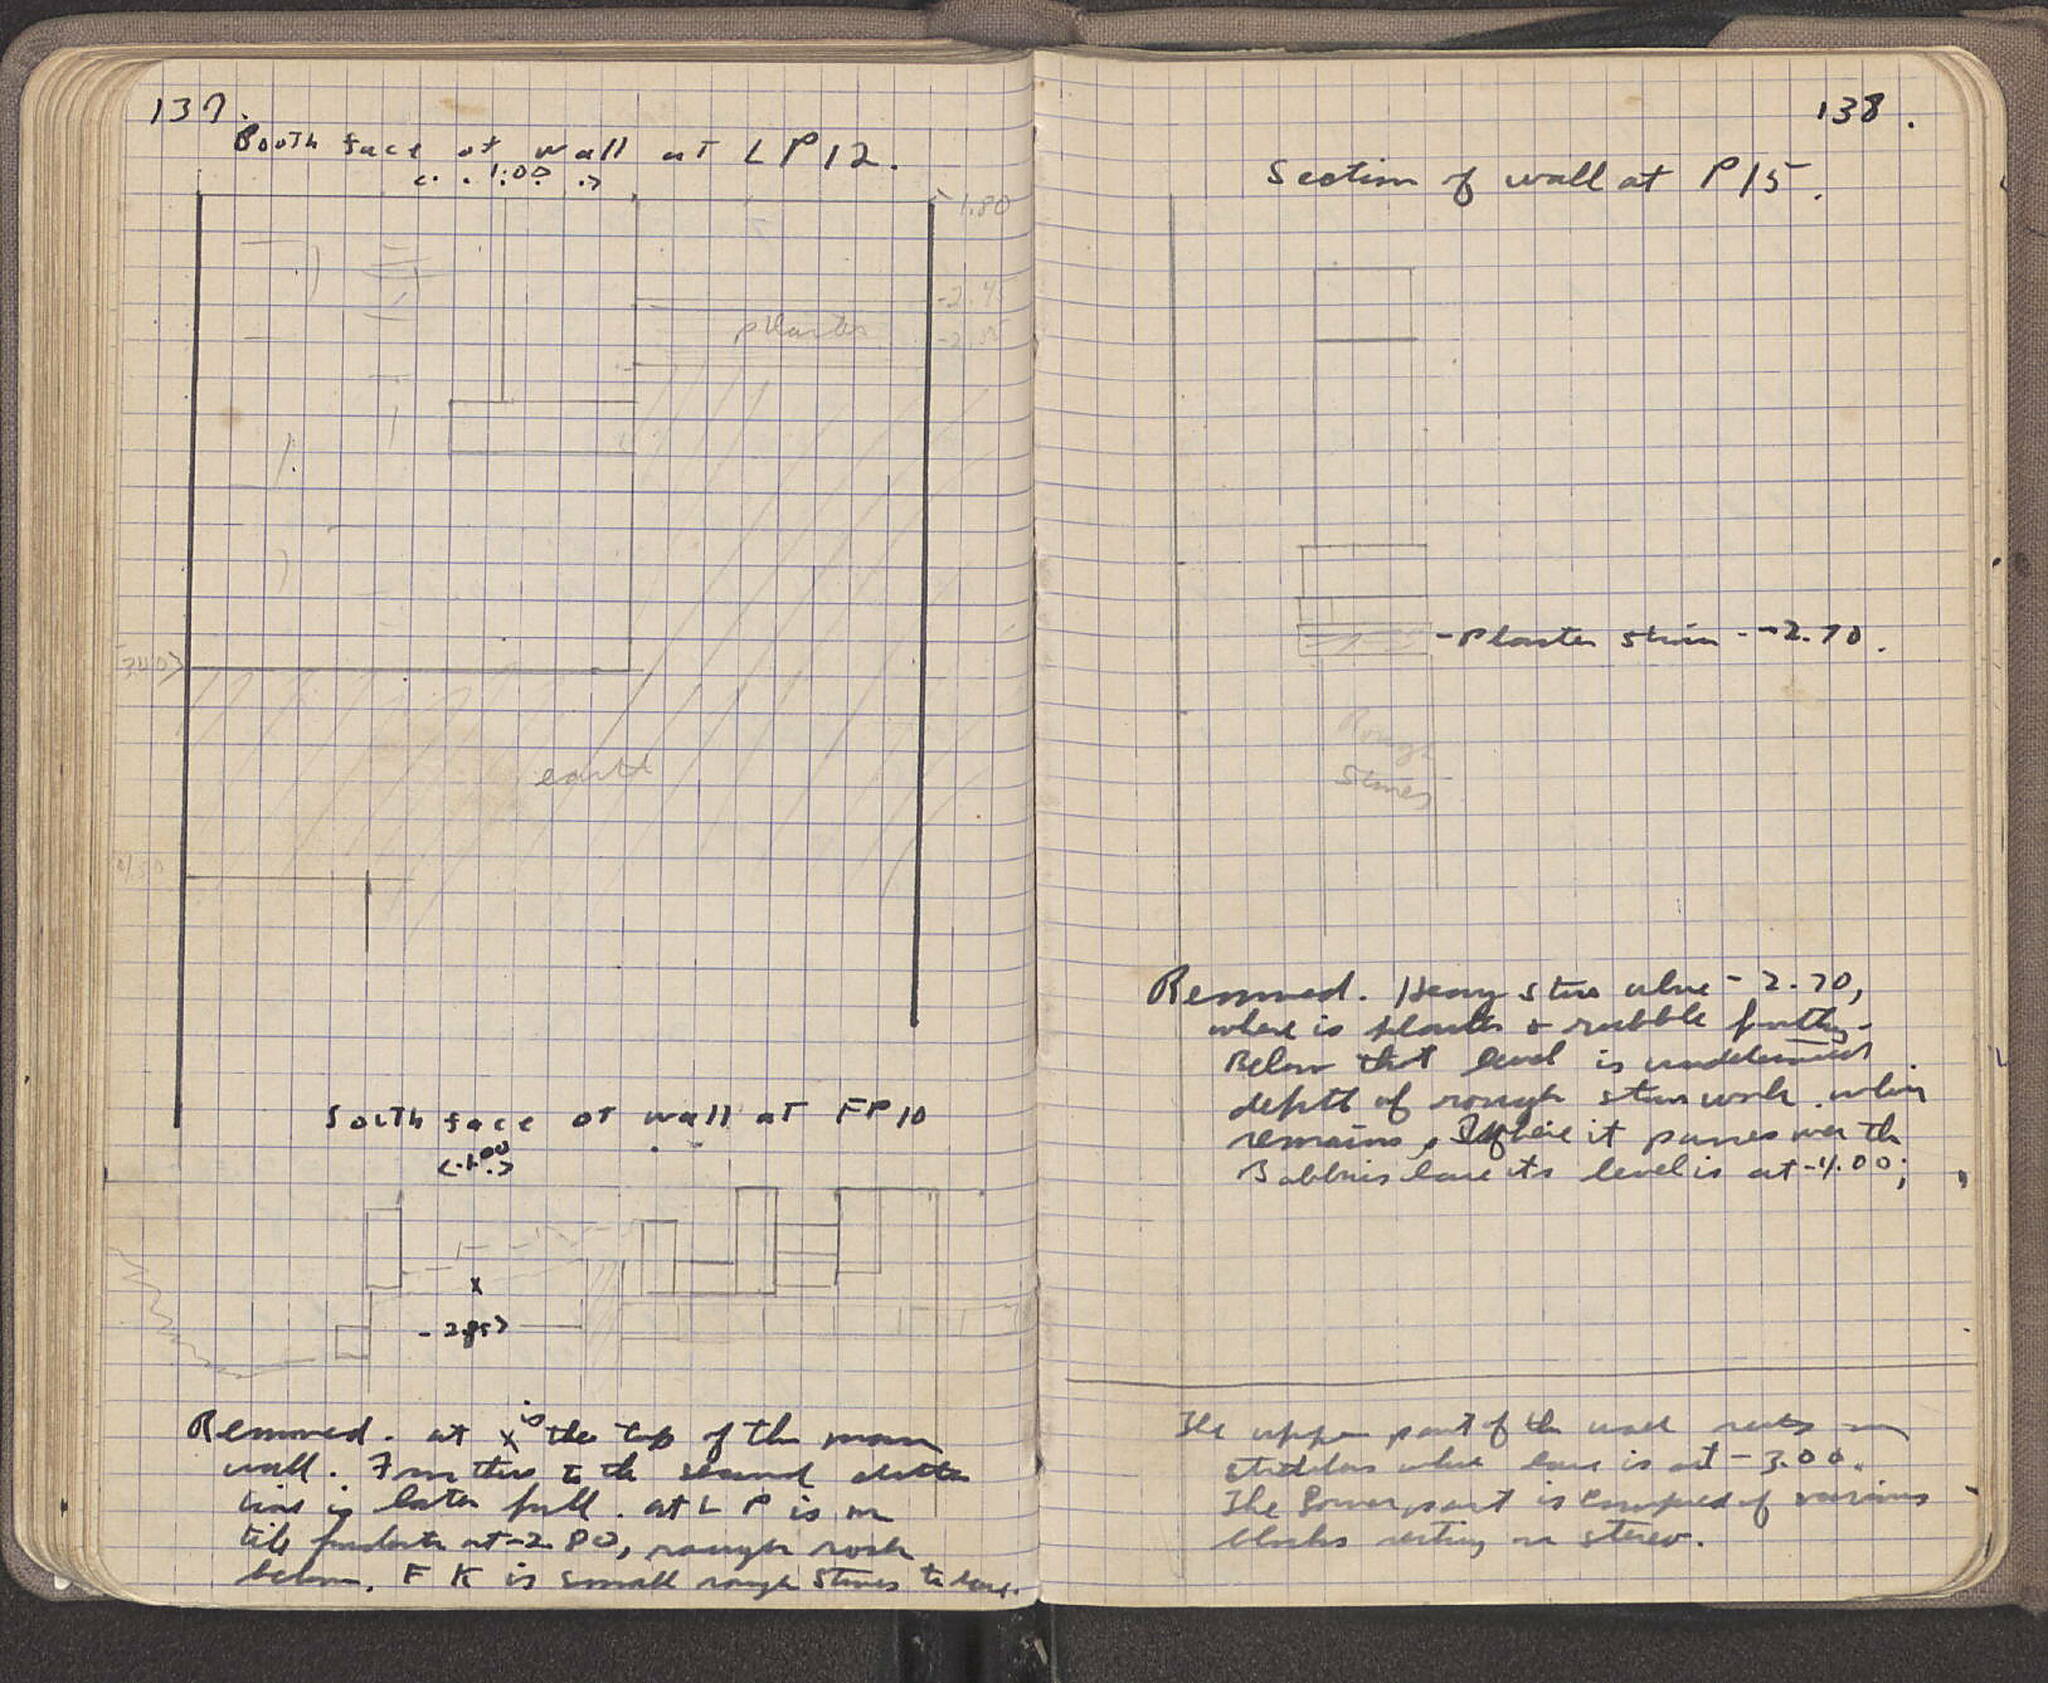 137.
South face of wall at LP12.
1:00
-1.80
-2.45
plaster
-3.40
earth
South face of wall at FP10
1.00
x
-2.85
Removed. at x is the top of the main
wall. From this to the second dotted
line is later fill. at L P is on
tile at -2.80, rough rock
below. F K is small rough stones to
138.
Section of wall at P15.
-Plaster strain -2.70.
Rough
Stones
Removed. Heavy stone above -2.70,
where is plaster & rubble
Below that level is undetermined
depth of rough stone work which
remains, where it passes over the
base its level is at -4.00;
The upper part of the wall rests on
whose base is at -3.00.
The lower part is composed of various
blocks resting on stereo.